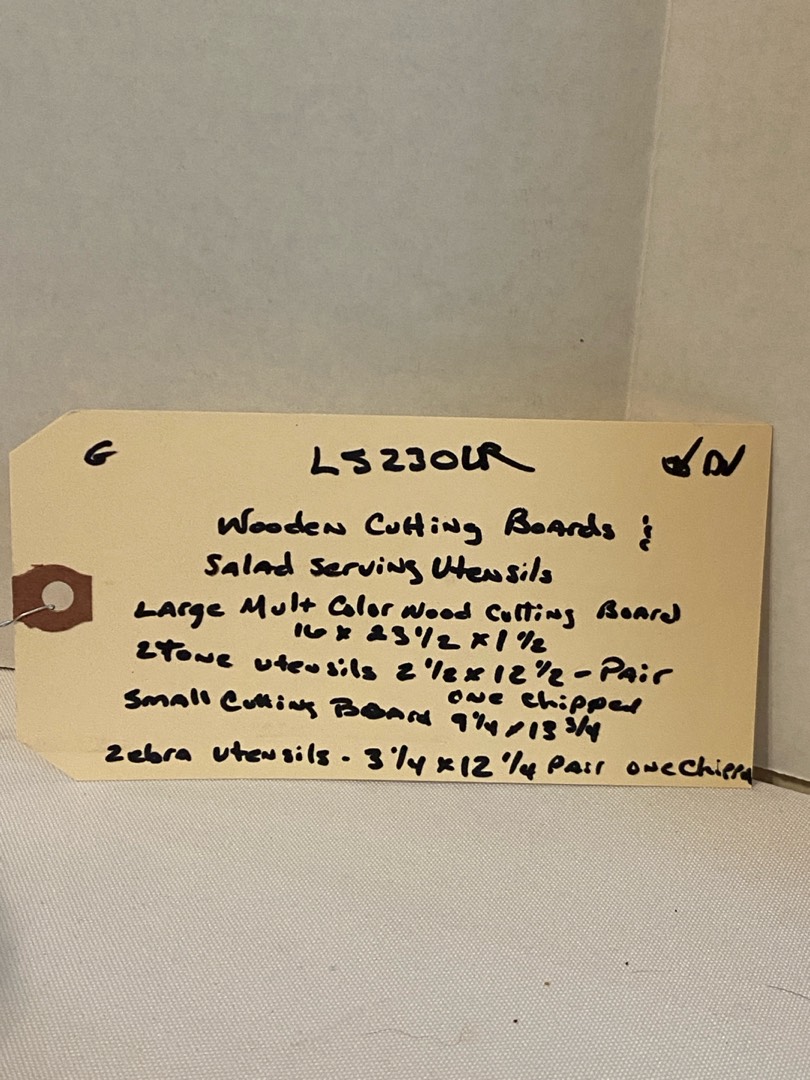 G LS230LR DV
Wooden Cutting Boards &
Salad Serving Utensils
Large Mult Color Wood Cutting Board
16 x 23 1/2 x 1 1/2
2 Tone utensils 2 1/2 x 12 1/2 - Pair
one chipped
Small Cutting Board 9 1/4 x 13 3/4
Zebra utensils - 3 1/4 x 12 1/4 Pair one Chippd